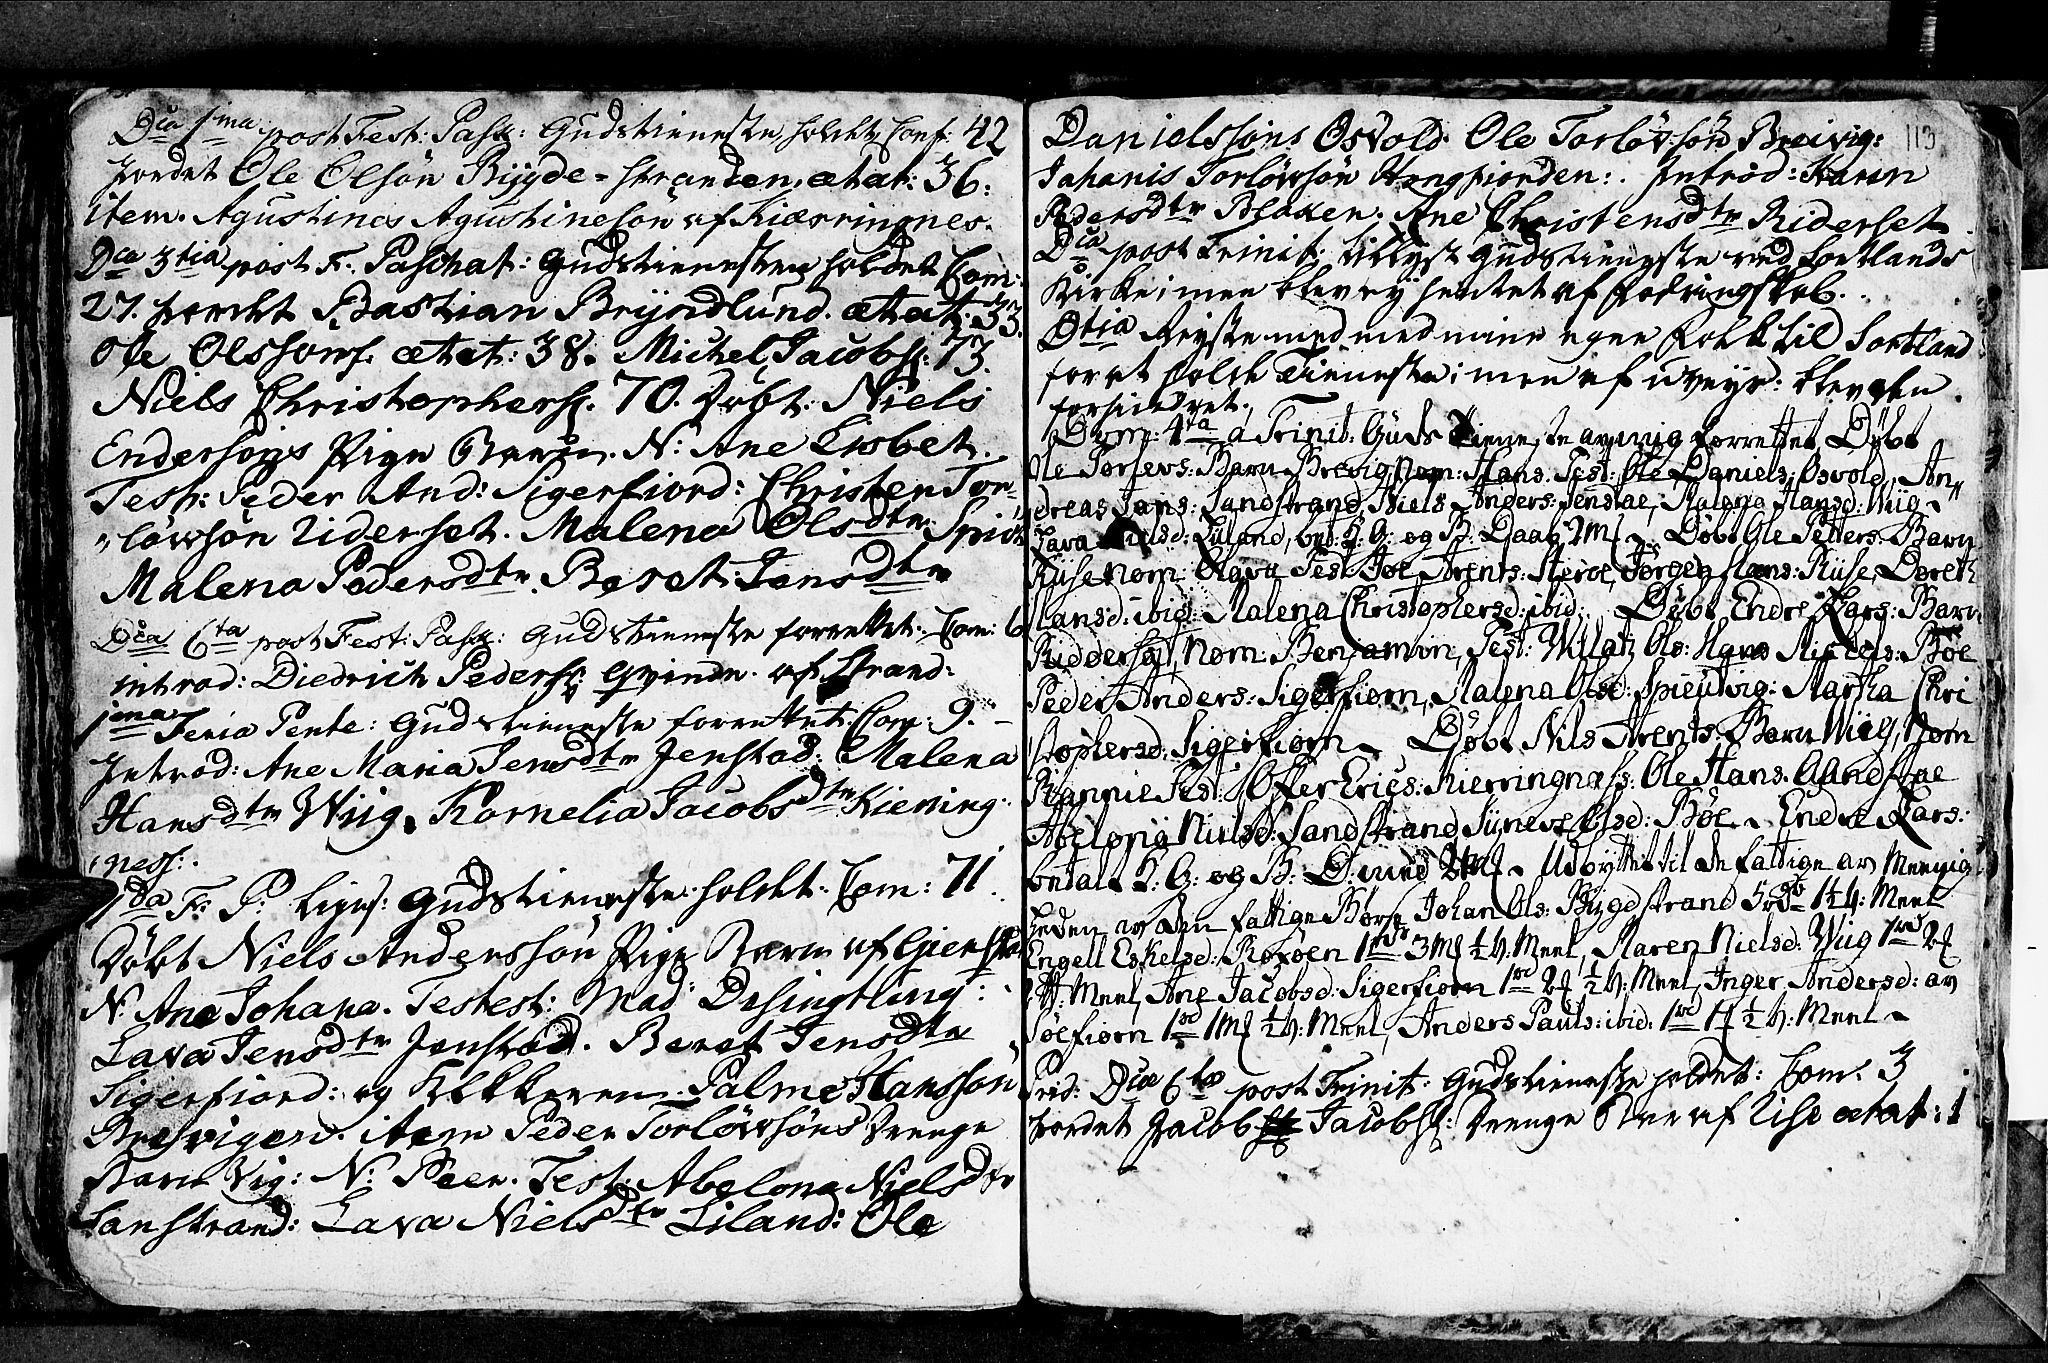 Dca 1ma post Fest: Pasch: Gudstieneste holdt Conf. 42
Jordet Ole Olsön Bÿgde-stranden, ætat: 36:
item. Agustines Agustinesön af Kiærringnes.
Dca 3tia post F. Paschat: Gudstienesten holdet Com:
27. Jordet Bastian Brÿndlund. ætat. 33.
Ole Olssons. ætat: 38. Michel Jacobs: 73.
Niels Christophers. 70. Döbt: Niels
Endersöns Pige Barn. N: Ane Lisbet.
Test: Peder And: Sigerfiord: Christen Tor-
"löwsön Riderset. Malena Olsdtr Spich
Malena Pedersdtr. Beret Jensdtr
Dca 6ta post Fest: Pasch: Gudstieneste forrettet. Com: 6
introd: Diedrich Peders: Qvinde. af Strand:
1ma Feria Pente: Gudstieneste forrettet. Com: 9.-
Introd: Ane Maria Jensdtr Jenstad: Malena
Hansdtr Wiig. Kornelia Jacobsdtr Kiering-
ness:.
2da F: P: liges: Gudstieneste holdt. Com: 71.
Döbt Niels Anderssön Pige Barn af Gienstad
N. Ane Johana. Testest: Mad: Desingtling:
Lava Jensdtr Jenstad. Beret Jensdtr
Sigerfiord: og Klokkeren Palme Hanssön
Brevigen. item Peder Torlöwsöns Drenge
Barn Vig: N: Peer. Test: Abelona Nielsdtr
Sanstrand: Lava Nielsdtr Liland: Ole
113
Danielssöns Osvold. Ole Torlövsön Breivig:
Johanis Torlövsön Hognfiorden:. Introd: Karen
Pedersdtr Blaken. Ane Christensdtr Riderset
Dca post Trinit: tillyst Gudstieneste ved Sortlands
Kirke; men blev ey hentet af Rodringskab.
Dtia Reyste med mine egne folk til Sortland
for at holde Tieneste; men af uveyr: blev den
forhindret.
Dom: 4ta a Trinit: Guds Tieneste av mig forrettet, Döbt
Ole Torlevs: Barn Brevig Nom: Hans. Test: Ole Daniels: Osvold, An"
dreas Jans: Sandstrand, Niels Anders: Jenstae, Malena Hansd: Wiig
Lava Nielsd: Liland, bet: K: G: og B: Daab 2 M. Döbt Ole Petters: Barn
Küse nom: Olava Test Joe Arents: Steroe, Jörgen Hans: Kuse, Doreth
Hansd: ibid: Malena Christophersd: ibid: Döbt Endre Lars: Barn
Riddersæt, Nom: Benjamin, Test: Willatz Ols: Hans Michels: Böe
Peder Anders: Sigerfiorn, Malena Olsd: Spieutvig: Martha Chri
stophersd: Sigerfiorn. Döbt Nils Arents: Barn Wiig, Nom
Rannie Test: Offer Erics: Kierringnæss: Ole Hans: Aandstae
Abelong Nielsd: Sandstrand Sÿneve Olsd: Böe. Endre Lars:
betalt K: G: og B: D: med 2 M. Udbyttet til de fattige av Meenig
heden av den fattige Börse Johan Ols: Bÿgdstrand 5 1½ H: Meel
Engell Eskelsd: Roxöen 1 rd 3 M ½ H: Meel, Karen Nielsd: Wiig 1 rd 2
H: Meel, Ane Jacobsd: Sigerfiorn 1 rd 2 ½ H: Meel, Inger Andersd: av
Söefiorn 1 rd 1 M ½ H: Meel, Anders Pauls: ibid: 1 rd 1 ½ H: Meel.
Dca 6ta post Trinit: Gudstieneste holdet: Com: 3
Jordet Jacob Jacobs: Drenge Barn af Rise ætat: 1